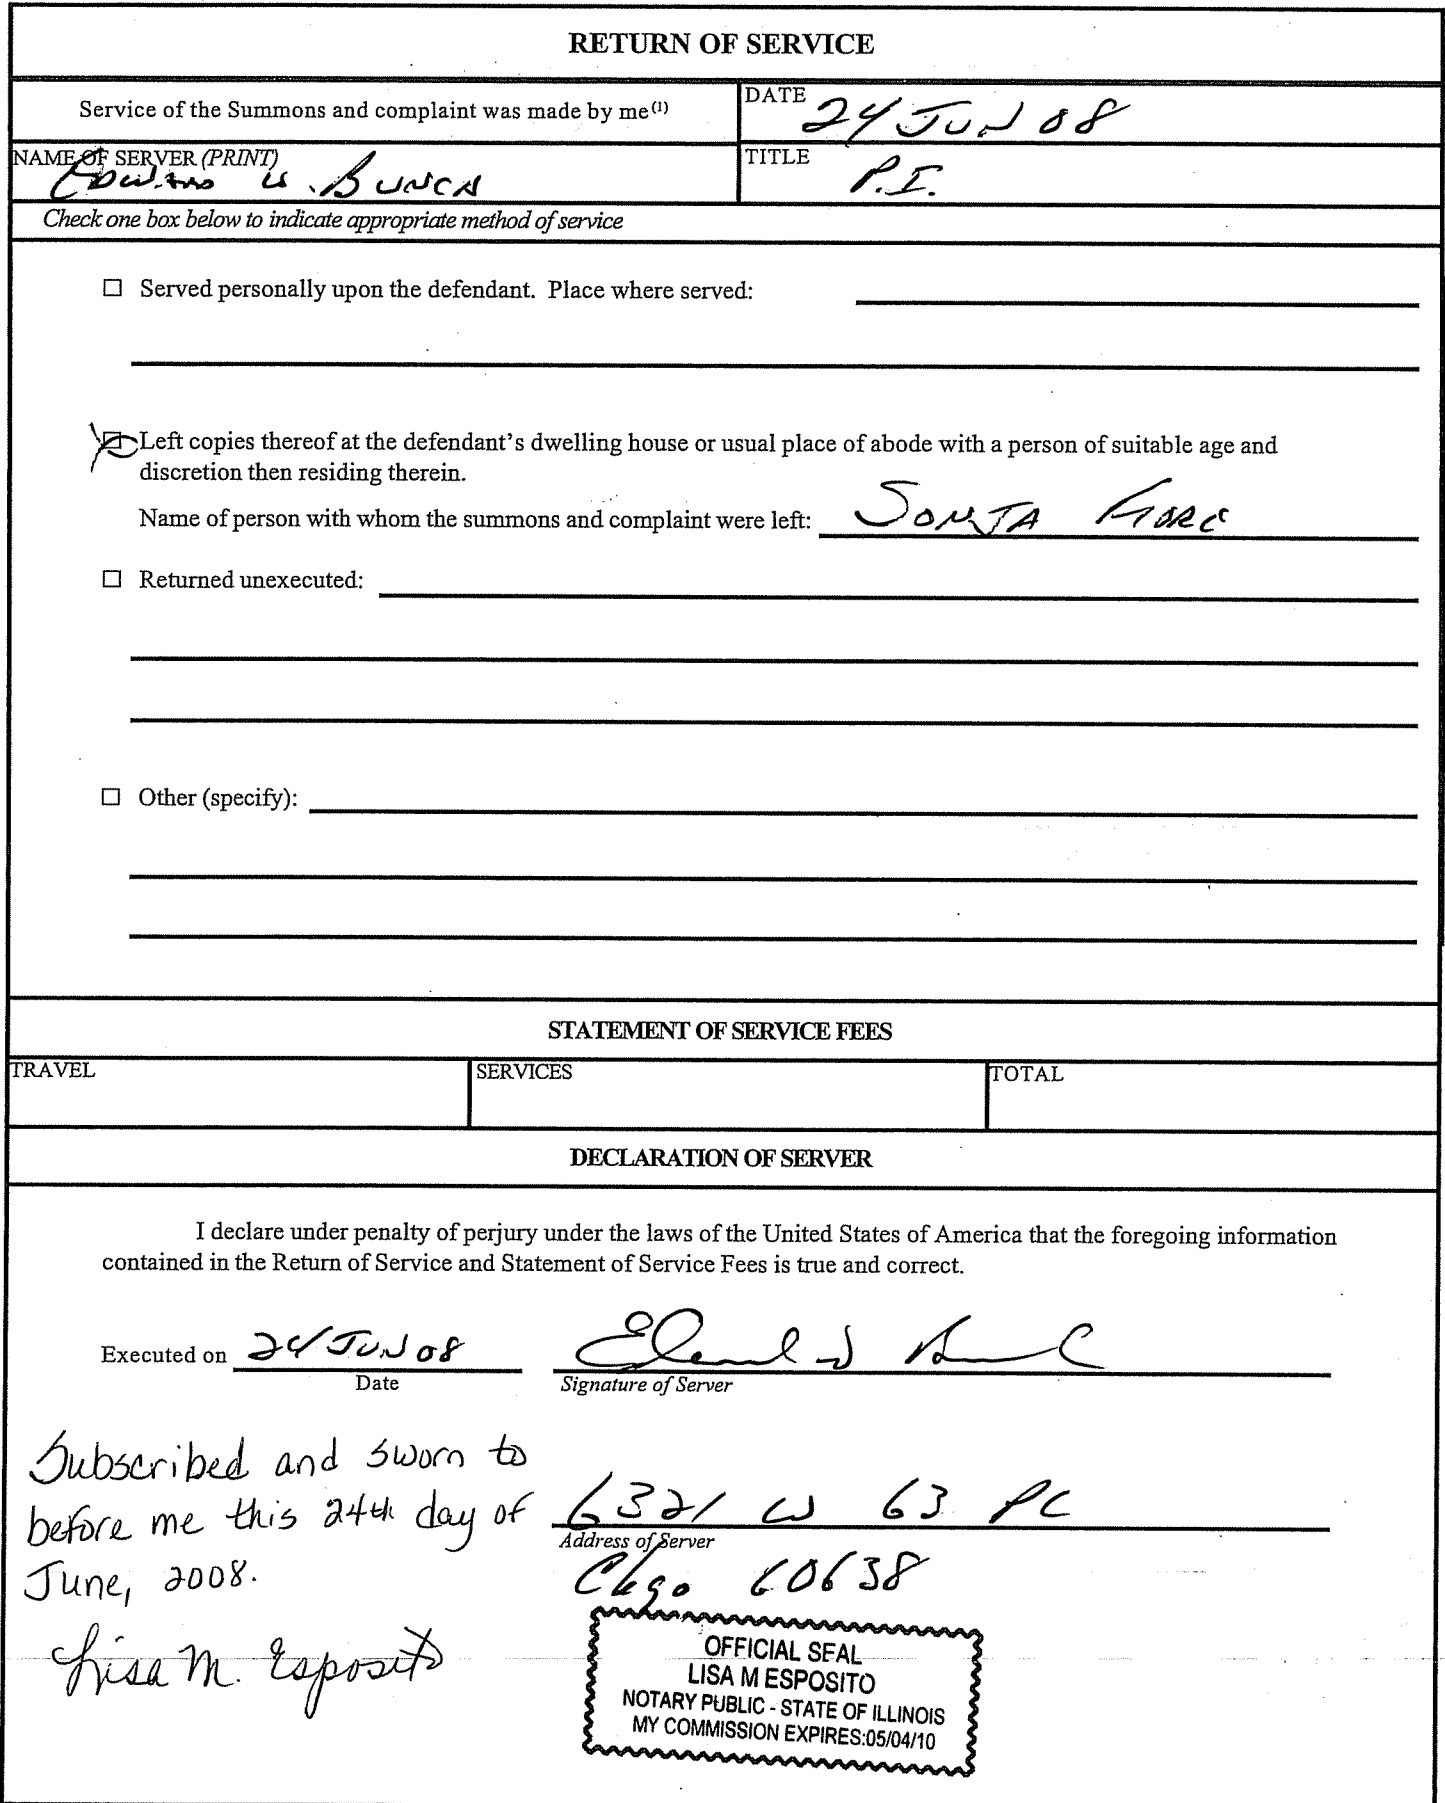 RETURN OF SERVICE
Service of the Summons and complaint was made by me(1)
DATE 24 JUN 08
NAME OF SERVER (PRINT)
W. BUNCH
TITLE P.I.
Check one box below to indicate appropriate method of service
☐ Served personally upon the defendant. Place where served:
Left copies thereof at the defendant's dwelling house or usual place of abode with a person of suitable age and
discretion then residing therein.
Name of person with whom the summons and complaint were left: SONJA
☐ Returned unexecuted:
☐ Other (specify):
STATEMENT OF SERVICE FEES
TRAVEL
SERVICES
TOTAL
DECLARATION OF SERVER
I declare under penalty of perjury under the laws of the United States of America that the foregoing information
contained in the Return of Service and Statement of Service Fees is true and correct.
Executed on 24 JUN 08
Date
Signature of Server
Subscribed and sworn to
before me this 24th day of
June, 2008.
Lisa M. Esposito
6321 W 63 PL
Address of Server
Chgo. 60638
OFFICIAL SEAL
LISA M ESPOSITO
NOTARY PUBLIC - STATE OF ILLINOIS
MY COMMISSION EXPIRES:05/04/10